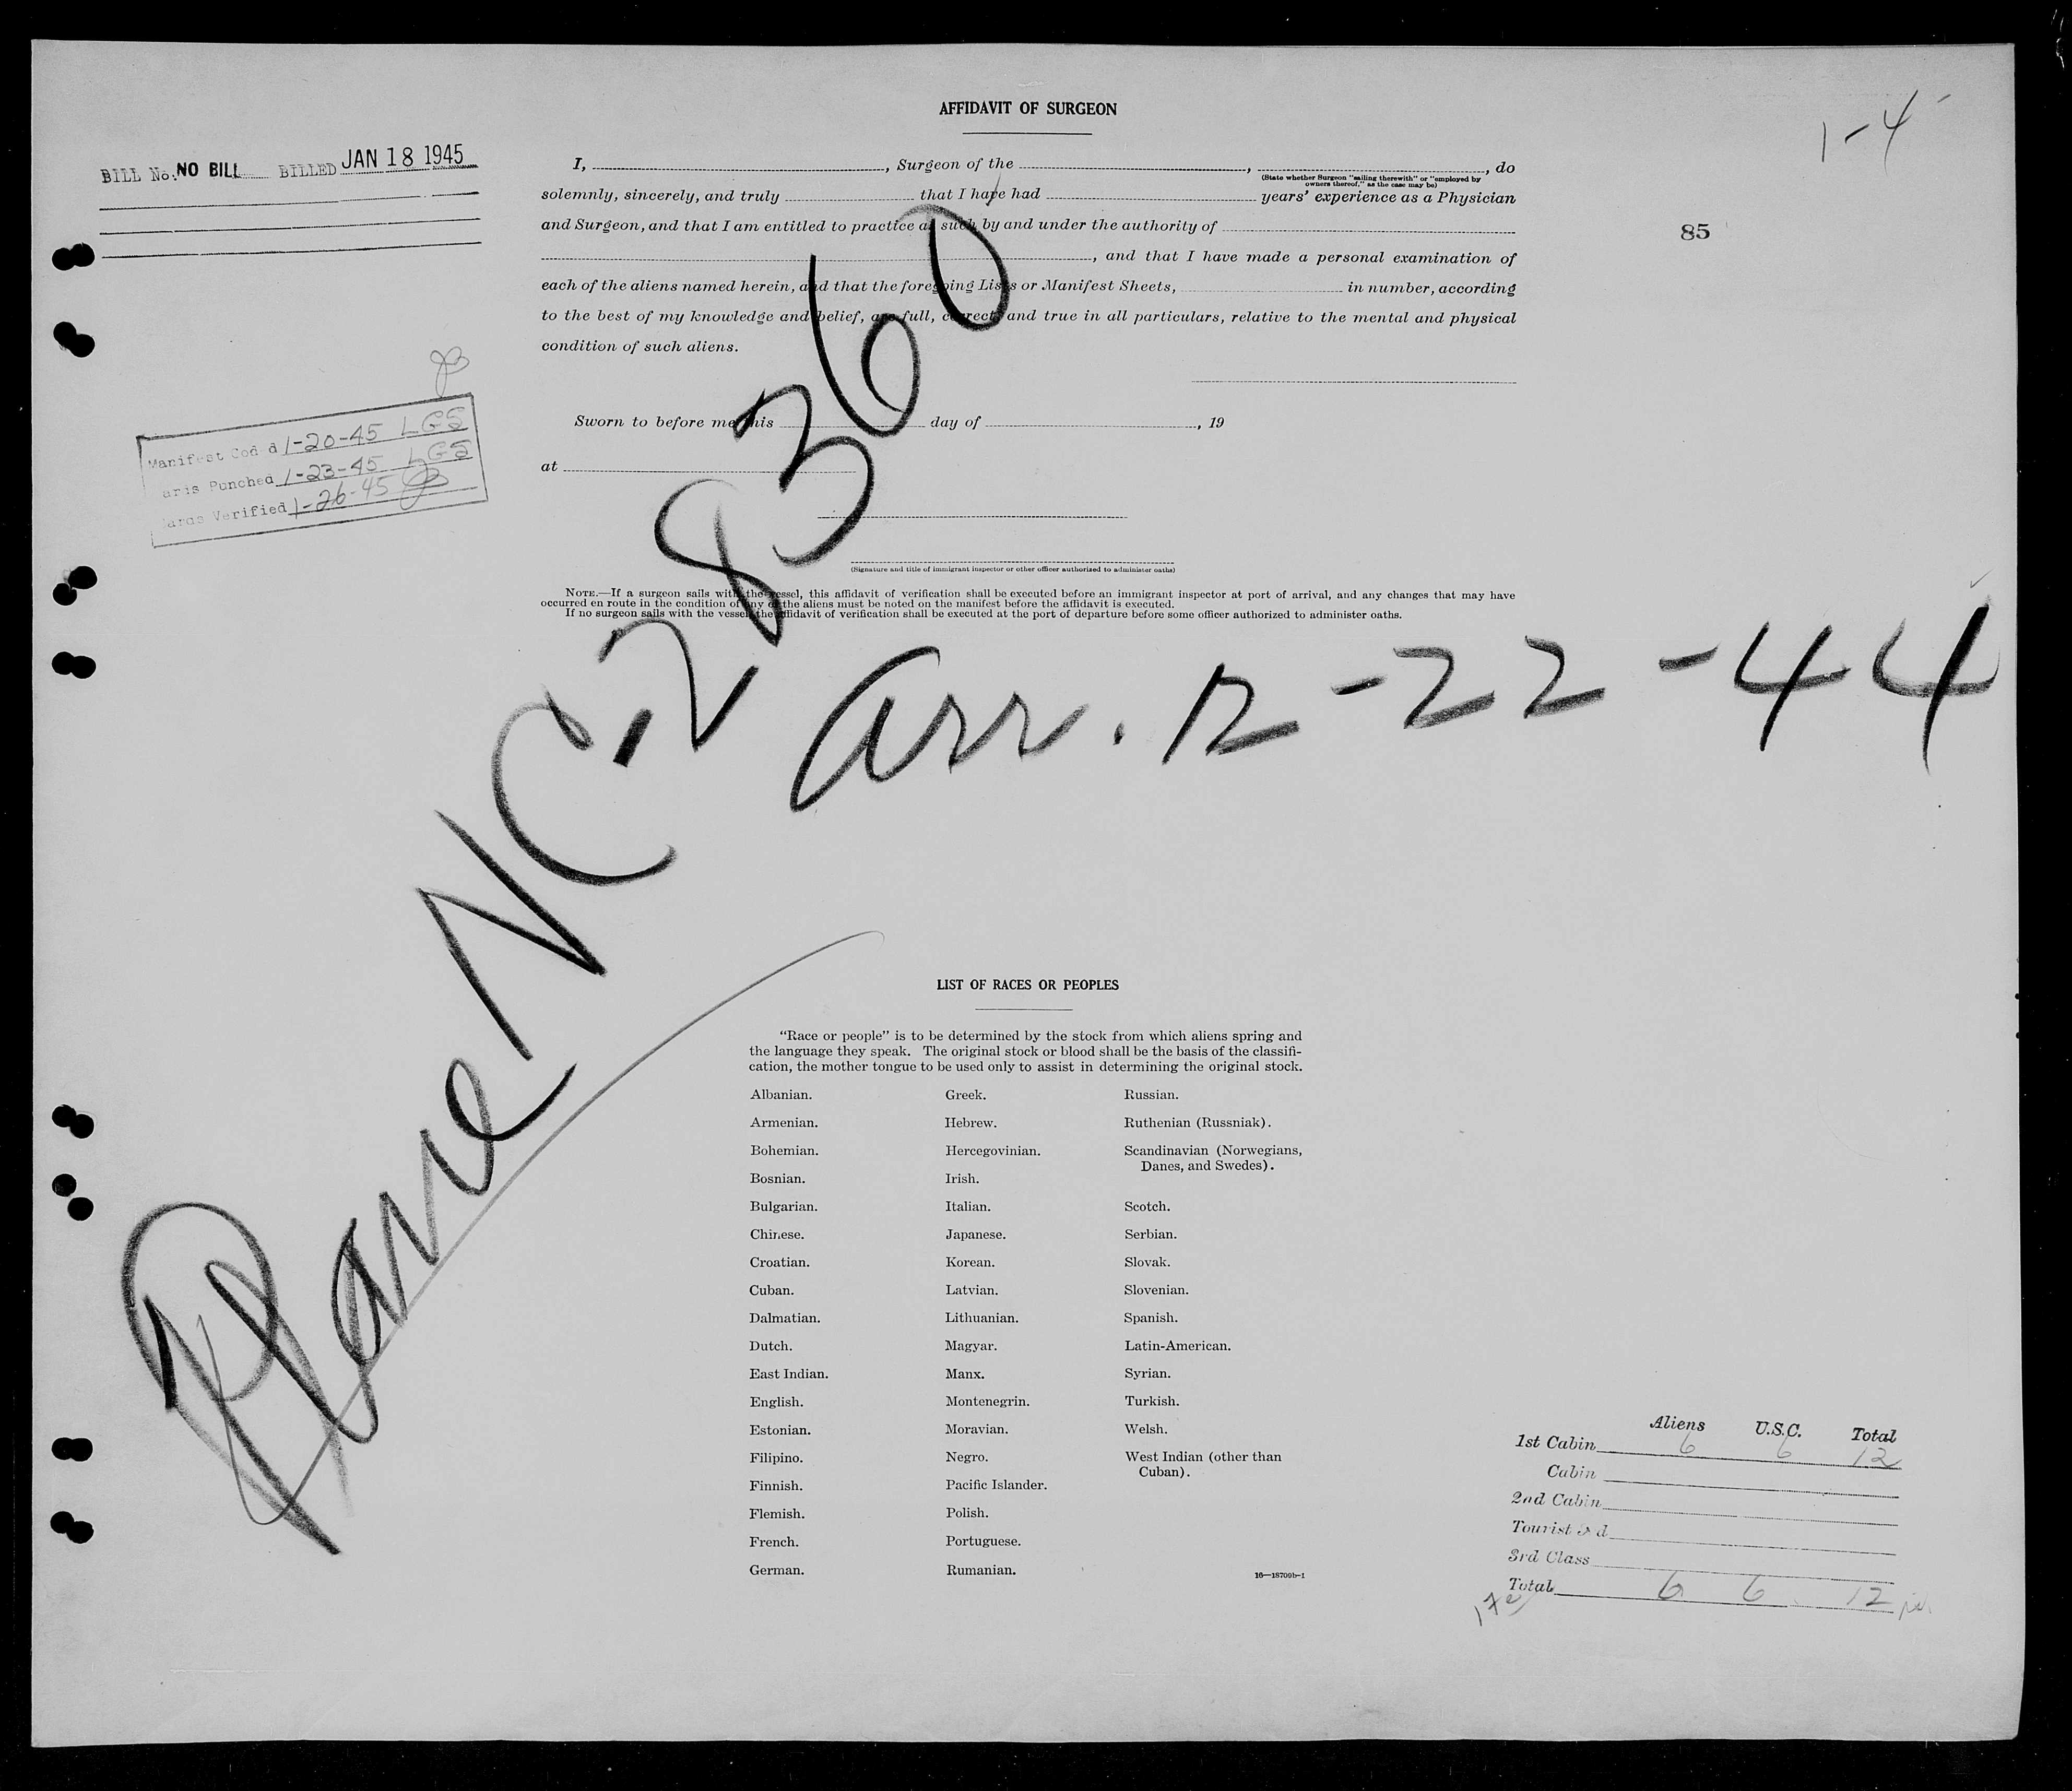 AFFIDAVIT OF SURGEON
1-4
BILL No. NO BILL BILLED JAN 18 1945
I, , Surgeon of the , , do
(State whether Surgeon "sailing therewith" or "employed by
owners thereof," as the case may be)
solemnly, sincerely, and truly that I have had years' experience as a Physician
and Surgeon, and that I am entitled to practice as such by and under the authority of
85
, and that I have made a personal examination of
each of the aliens named herein, and that the foregoing Lists or Manifest Sheets, in number, according
to the best of my knowledge and belief, are full, correct, and true in all particulars, relative to the mental and physical
condition of such aliens.
Manifest Cod d 1-20-45 LGS
ards Punched 1-23-45 LGS
ards Verified 1-26-45
Sworn to before me this day of , 19
at
(Signature and title of immigrant inspector or other officer authorized to administer oaths)
NOTE.—If a surgeon sails with the vessel, this affidavit of verification shall be executed before an immigrant inspector at port of arrival, and any changes that may have
occurred en route in the condition of any of the aliens must be noted on the manifest before the affidavit is executed.
If no surgeon sails with the vessel, the affidavit of verification shall be executed at the port of departure before some officer authorized to administer oaths.
Plane NC.28360
arr. 12-22-44
LIST OF RACES OR PEOPLES
"Race or people" is to be determined by the stock from which aliens spring and
the language they speak. The original stock or blood shall be the basis of the classifi-
cation, the mother tongue to be used only to assist in determining the original stock.
Albanian.
Armenian.
Bohemian.
Bosnian.
Bulgarian.
Chinese.
Croatian.
Cuban.
Dalmatian.
Dutch.
East Indian.
English.
Estonian.
Filipino.
Finnish.
Flemish.
French.
German.
Greek.
Hebrew.
Hercegovinian.
Irish.
Italian.
Japanese.
Korean.
Latvian.
Lithuanian.
Magyar.
Manx.
Montenegrin.
Moravian.
Negro.
Pacific Islander.
Polish.
Portuguese.
Rumanian.
Russian.
Ruthenian (Russniak).
Scandinavian (Norwegians,
Danes, and Swedes).
Scotch.
Serbian.
Slovak.
Slovenian.
Spanish.
Latin-American.
Syrian.
Turkish.
Welsh.
West Indian (other than
Cuban).
16—18709b-1
Aliens U.S.C. Total
1st Cabin 6 6 12
Cabin
2nd Cabin
Tourist 3 d
3rd Class
Total 6 6 12